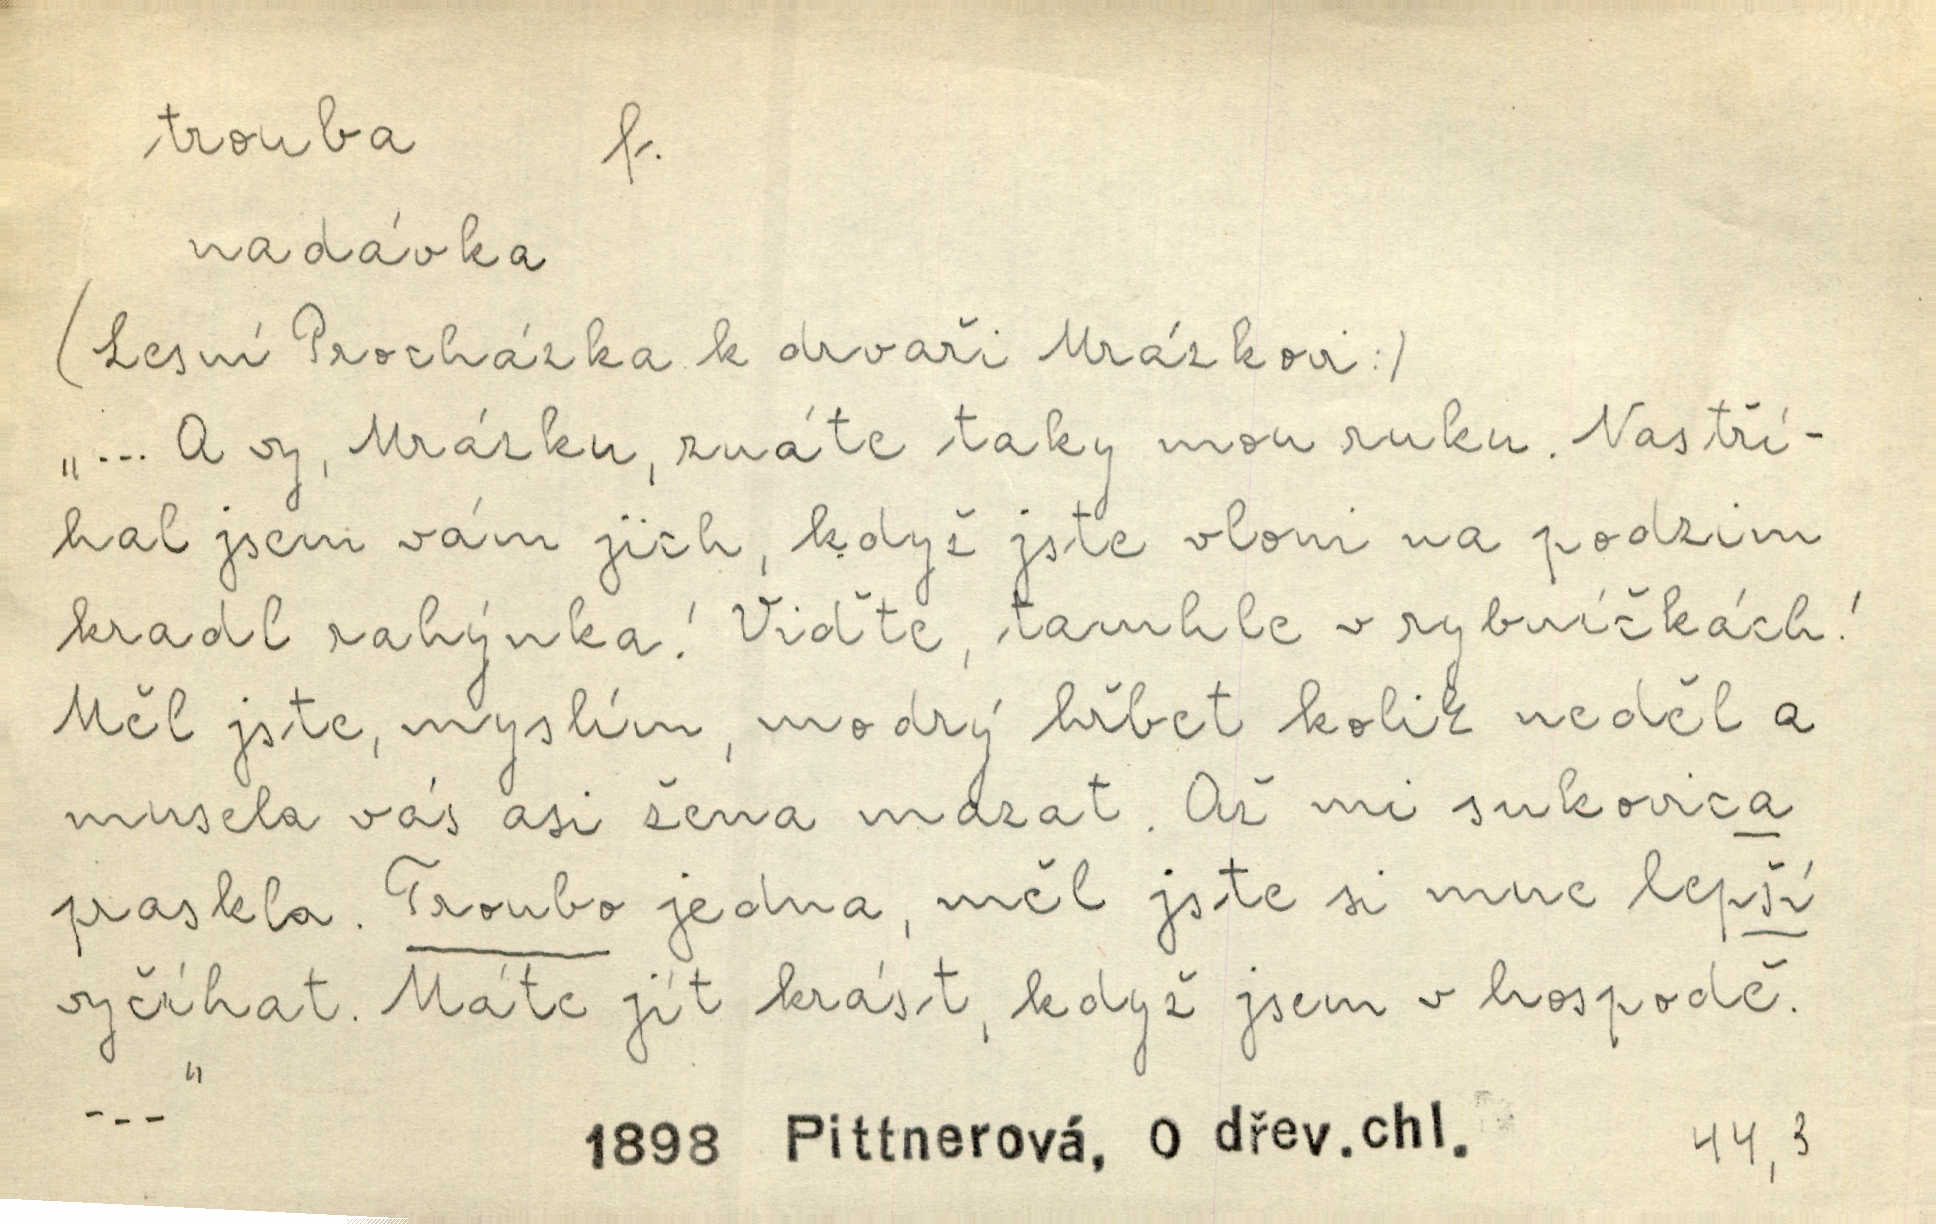 trouba f.
nadávka
(Lesní Procházka k drvaři Mrázkovi:)
„... A vy, Mrázku, znáte taky mou ruku. Nastří-
hal jsem vám jich, když jste vloni na podzim
kradl rahýnka! Viďte, tamhle v rybníčkách!
Měl jste, myslím, modrý hřbet kolik neděl a
musela vás asi žena mazat. Až mi sukovica
praskla. Troubo jedna, měl jste si mne lepší
vyčíhat. Máte jít krást, když jsem v hospodě.
---"
1898 Pittnerová, O dřev.chl. 44,3